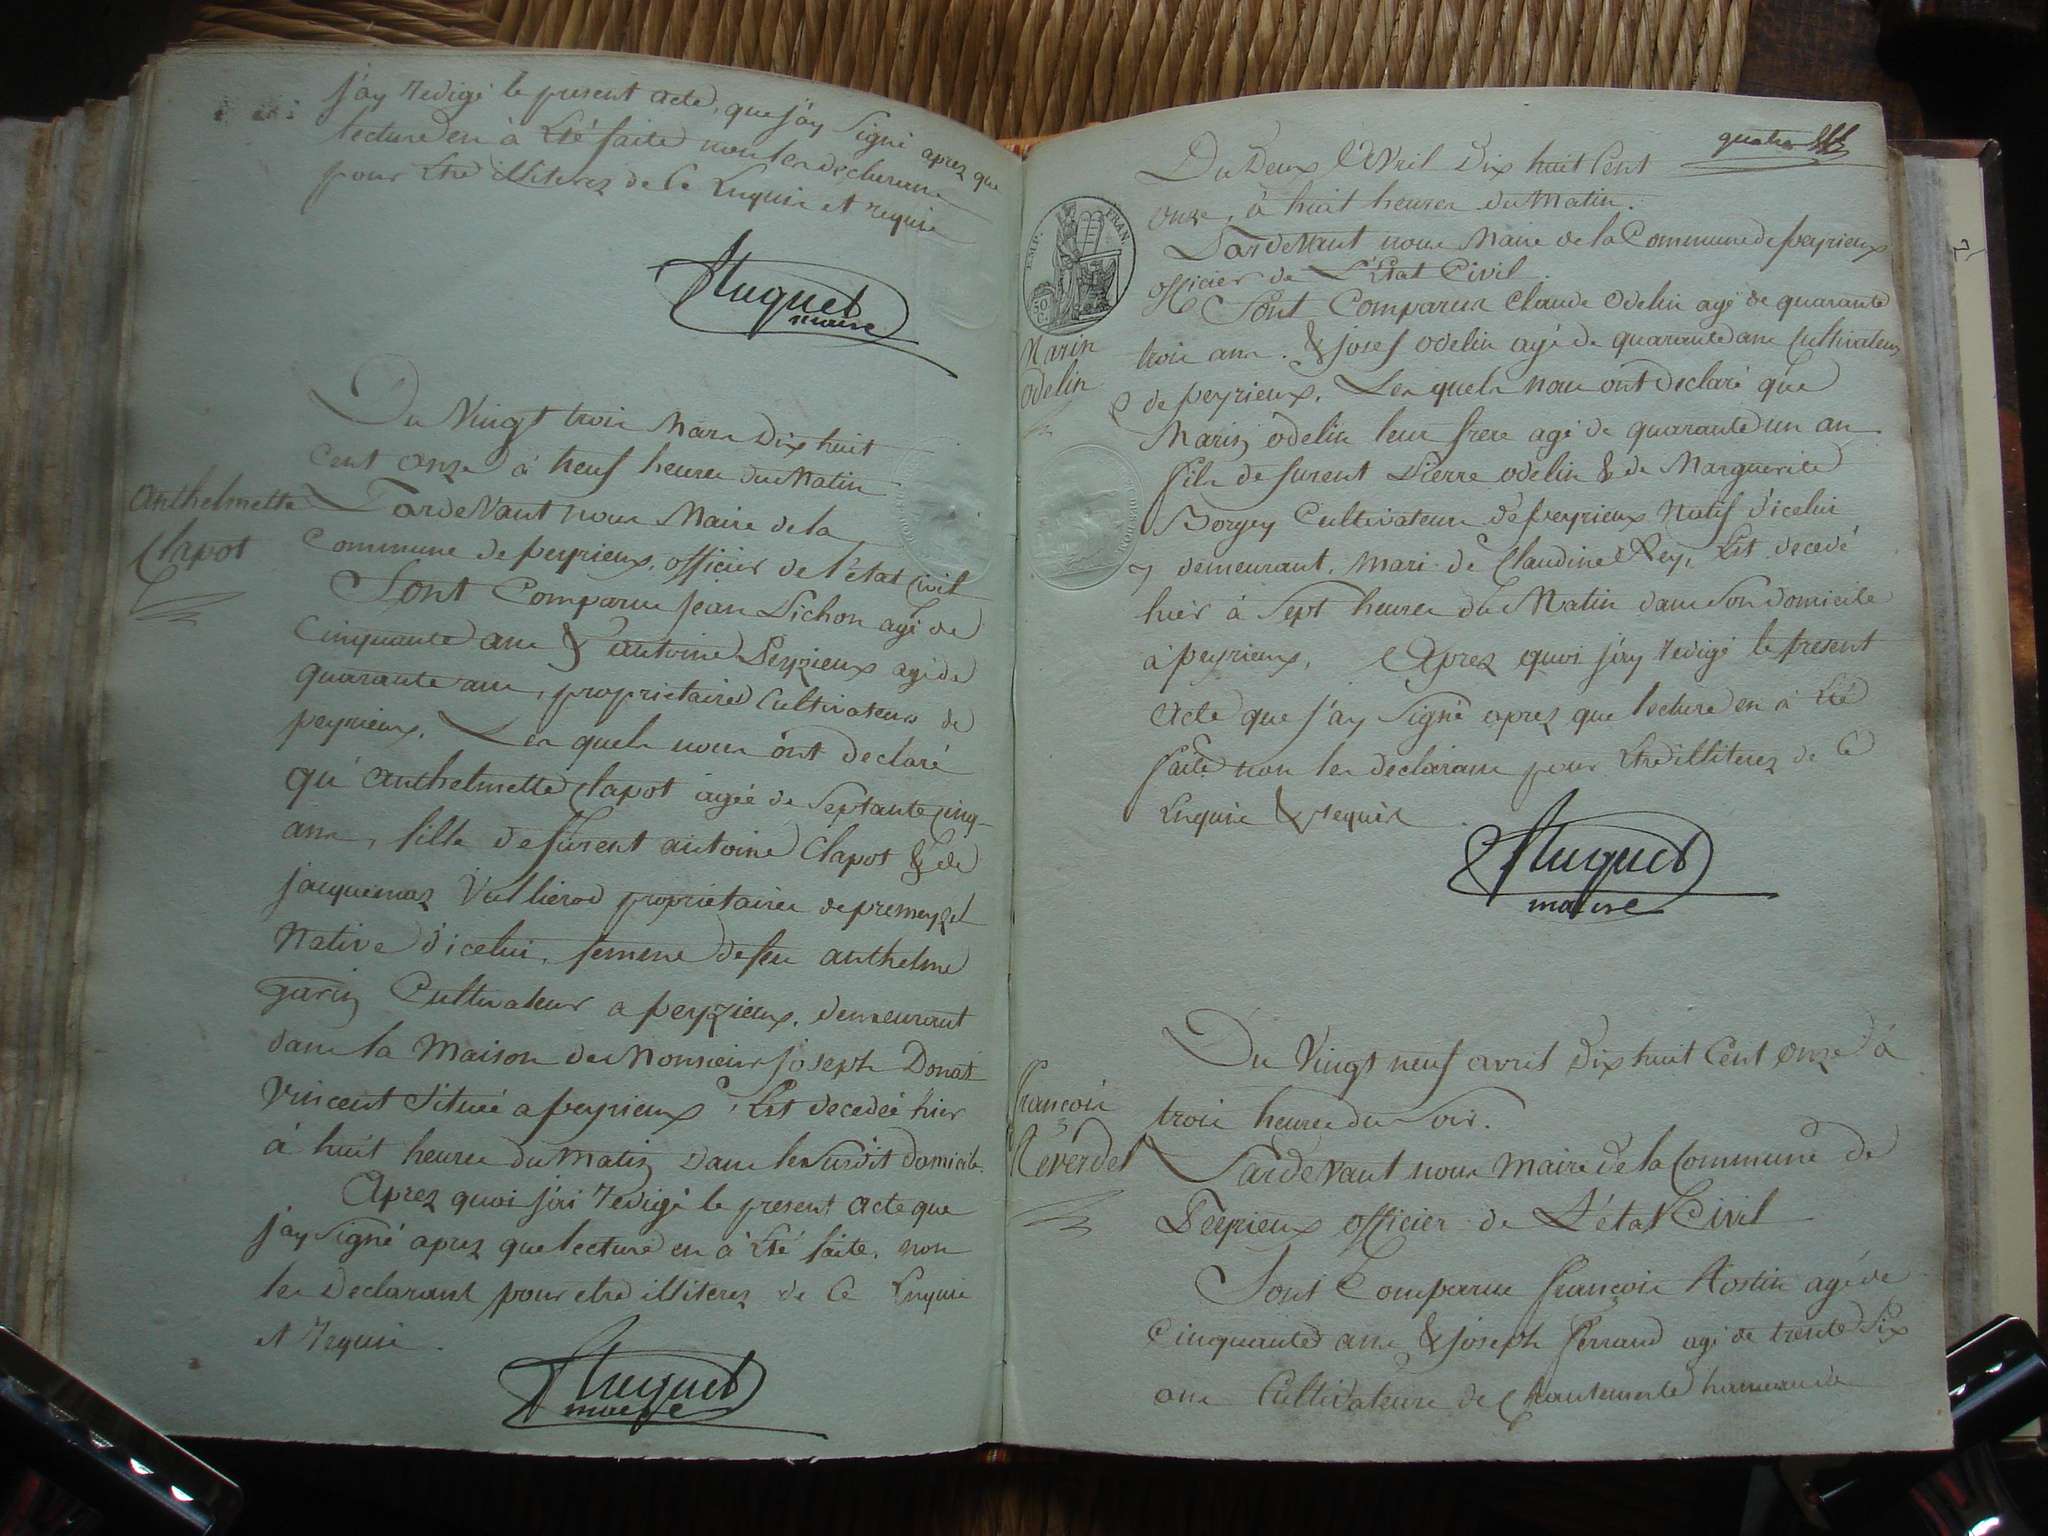 j'ay redigé le present acte, que j'ay signé aprez que
lecture en à eté faite non les declarans
pour etre illiterez de ce enquis et requis
Huguet
maire
Du vingt trois Mars Dix huit
cent onze à neuf heures du Matin
Anthelmette
Clapot
Pardevant nous Maire de la
Commune de peyrieux, officier de l'état Civil
Sont Comparus jean Pichon agé de
Cinquante ans & antoine Peyrieux agé de
quarante ans, proprietaires Cultivateurs de
peyrieux. Les quels nous ont declaré
qu'anthelmette Clapot agée de Septante cinq
ans, fille de furent antoine Clapot & de
jacquemaz Vullierod proprietaires de premeyzel
Native d'icelui, femme de feu anthelme
garin Cultivateur a peyzieux, demeurant
dans la Maison de Monsieur joseph Donat
Vincent Située a peyrieux, Est decedée hier
à huit heures du Matin Dans le Susdit domicile.
Aprez quoi j'ai redigé le present acte que
j'ay signé aprez que lecture en à eté faite, non
les Declarant pour etre illiterez de Ce Enquis
et requis.
Huguet
maire
quatre
Du Deux Avril Dix huit Cent
onze, à huit heures du Matin.
EMP. FRAN.
50 C.
Pardevant nous Maire de la Commune de peyrieux
officier de L'Etat Civil.
Sont Comparus Claude Odelin agé de quarante
Marin
Odelin
trois ans. & josef odelin agé de quarante ans Cultivateurs
de peyrieux. Les quels nous ont declaré que
Marin odelin leur frere agé de quarante un an
fils de furent Pierre odelin & de Marguerite
Borgey Cultivateurs de peyrieux Natif d'icelui
y demeurant, mari de Claudine Rey, Est decedé
hier à Sept heures du Matin dans Son domicile
à peyrieux, Aprez quoi j'ay redigé le present
Acte que j'ay Signé aprez que lecture en à eté
faite non les declarans pour etre illiterez de Ce
Enquis & requis.
Huguet
maire
Du Vingt neuf avril Dix huit Cent onze à
trois heures du Soir.
françois
Reverdet
Pardevant nous Maire de la Commune de
Peyrieux officier de L'état Civil
Sont Comparus françois Rostin agé de
Cinquante ans & joseph ferrand agé de trente Six
ans Cultivateurs de Chantemerle hameau de